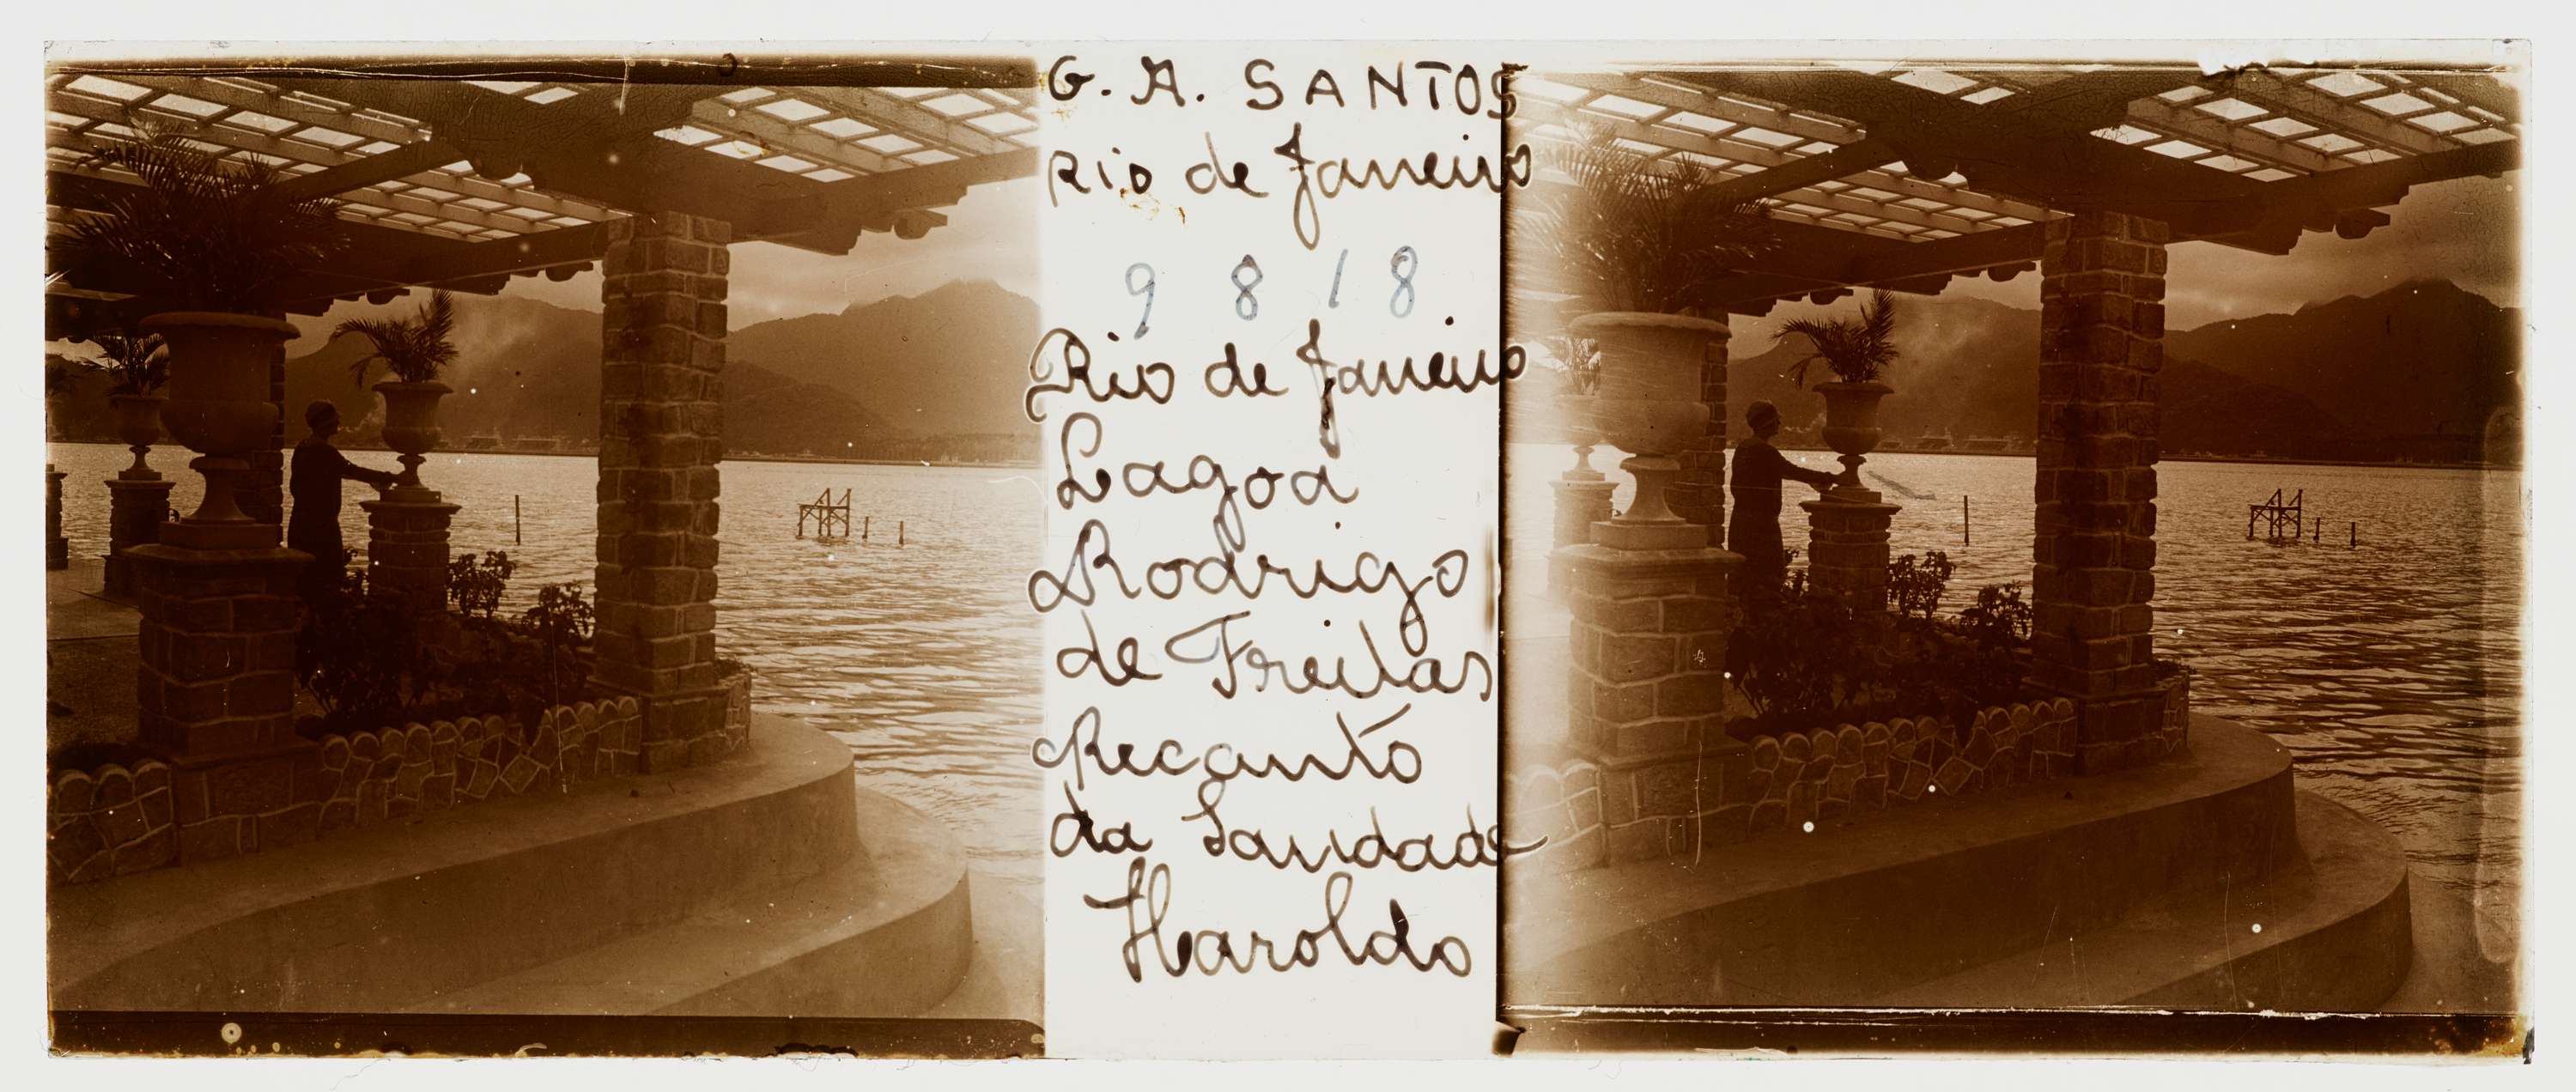 G. A. SANTOS
Rio de Janeiro
9818
Rio de Janeiro
Lagoa
Rodrigo
de Freitas
Recanto
da Saudade
Haroldo